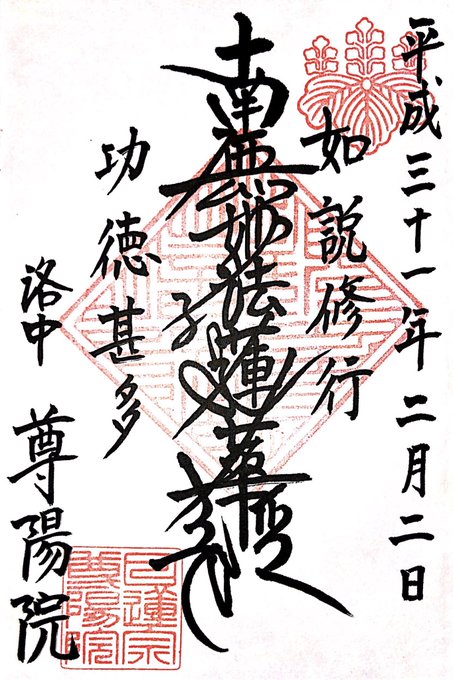 平成三十一年二月二日
如説修行
南無妙法蓮華経
功徳甚多
洛中 尊陽院
日蓮宗
尊陽院